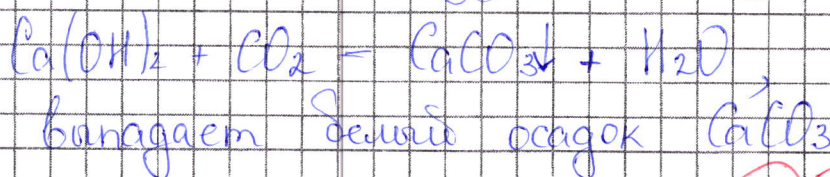 Ca(OH)₂ + CO₂ = CaCO₃↓ + H₂O,
выпадает белый осадок CaCO₃